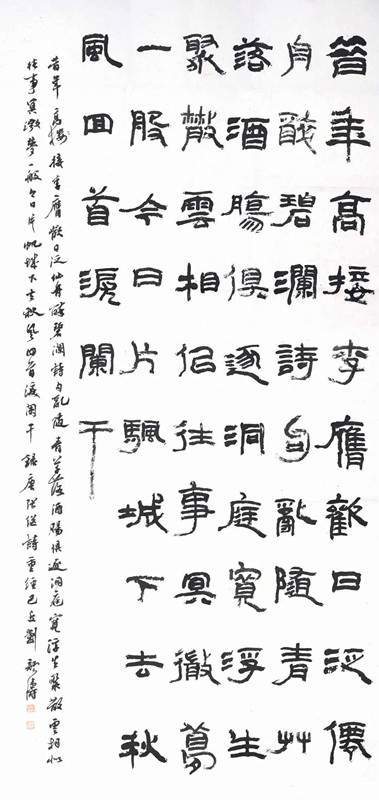 昔年高接李膺歡日泛僊
舟醉碧瀾詩句亂隨青艸
落酒腸俱逐洞庭寬浮生
聚散雲相似往事冥微夢
一般今日片颿城下去秋
風回首淚闌干
昔年高接李膺歡日泛仙舟醉碧瀾詩句亂隨青草落酒腸俱逐洞庭寬浮生聚散雲相似
往事冥微夢一般今日片帆城下去秋風回首淚闌干 錄唐張繼詩重經巴丘 劉